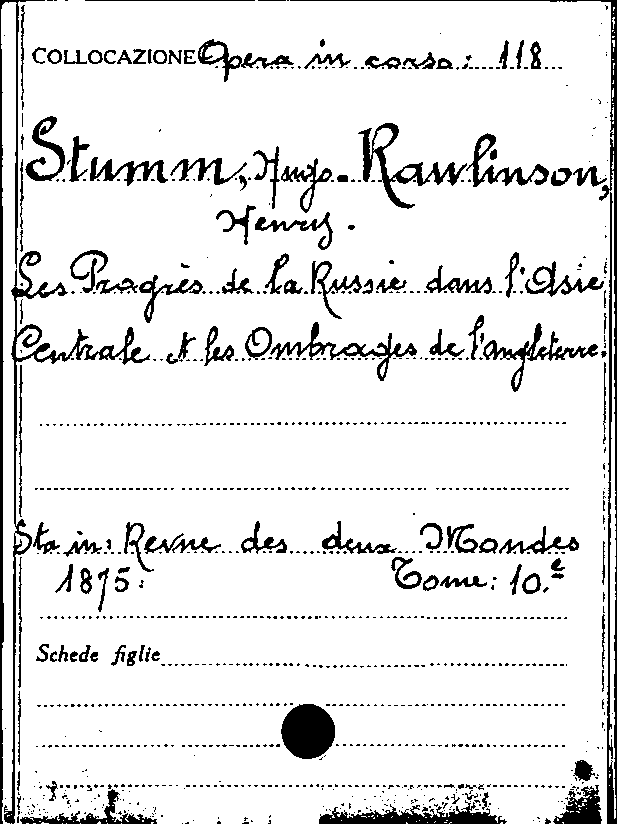 COLLOCAZIONE Opera in corso: 118
Stumm, Hugo. Rawlinson,
Henry.
Les Progrès de la Russie dans l'Asie
Centrale et les Ombrages de l'Angleterre.
Sta in: Revue des deux Mondes
1875. Tome: 10.e
Schede figlie